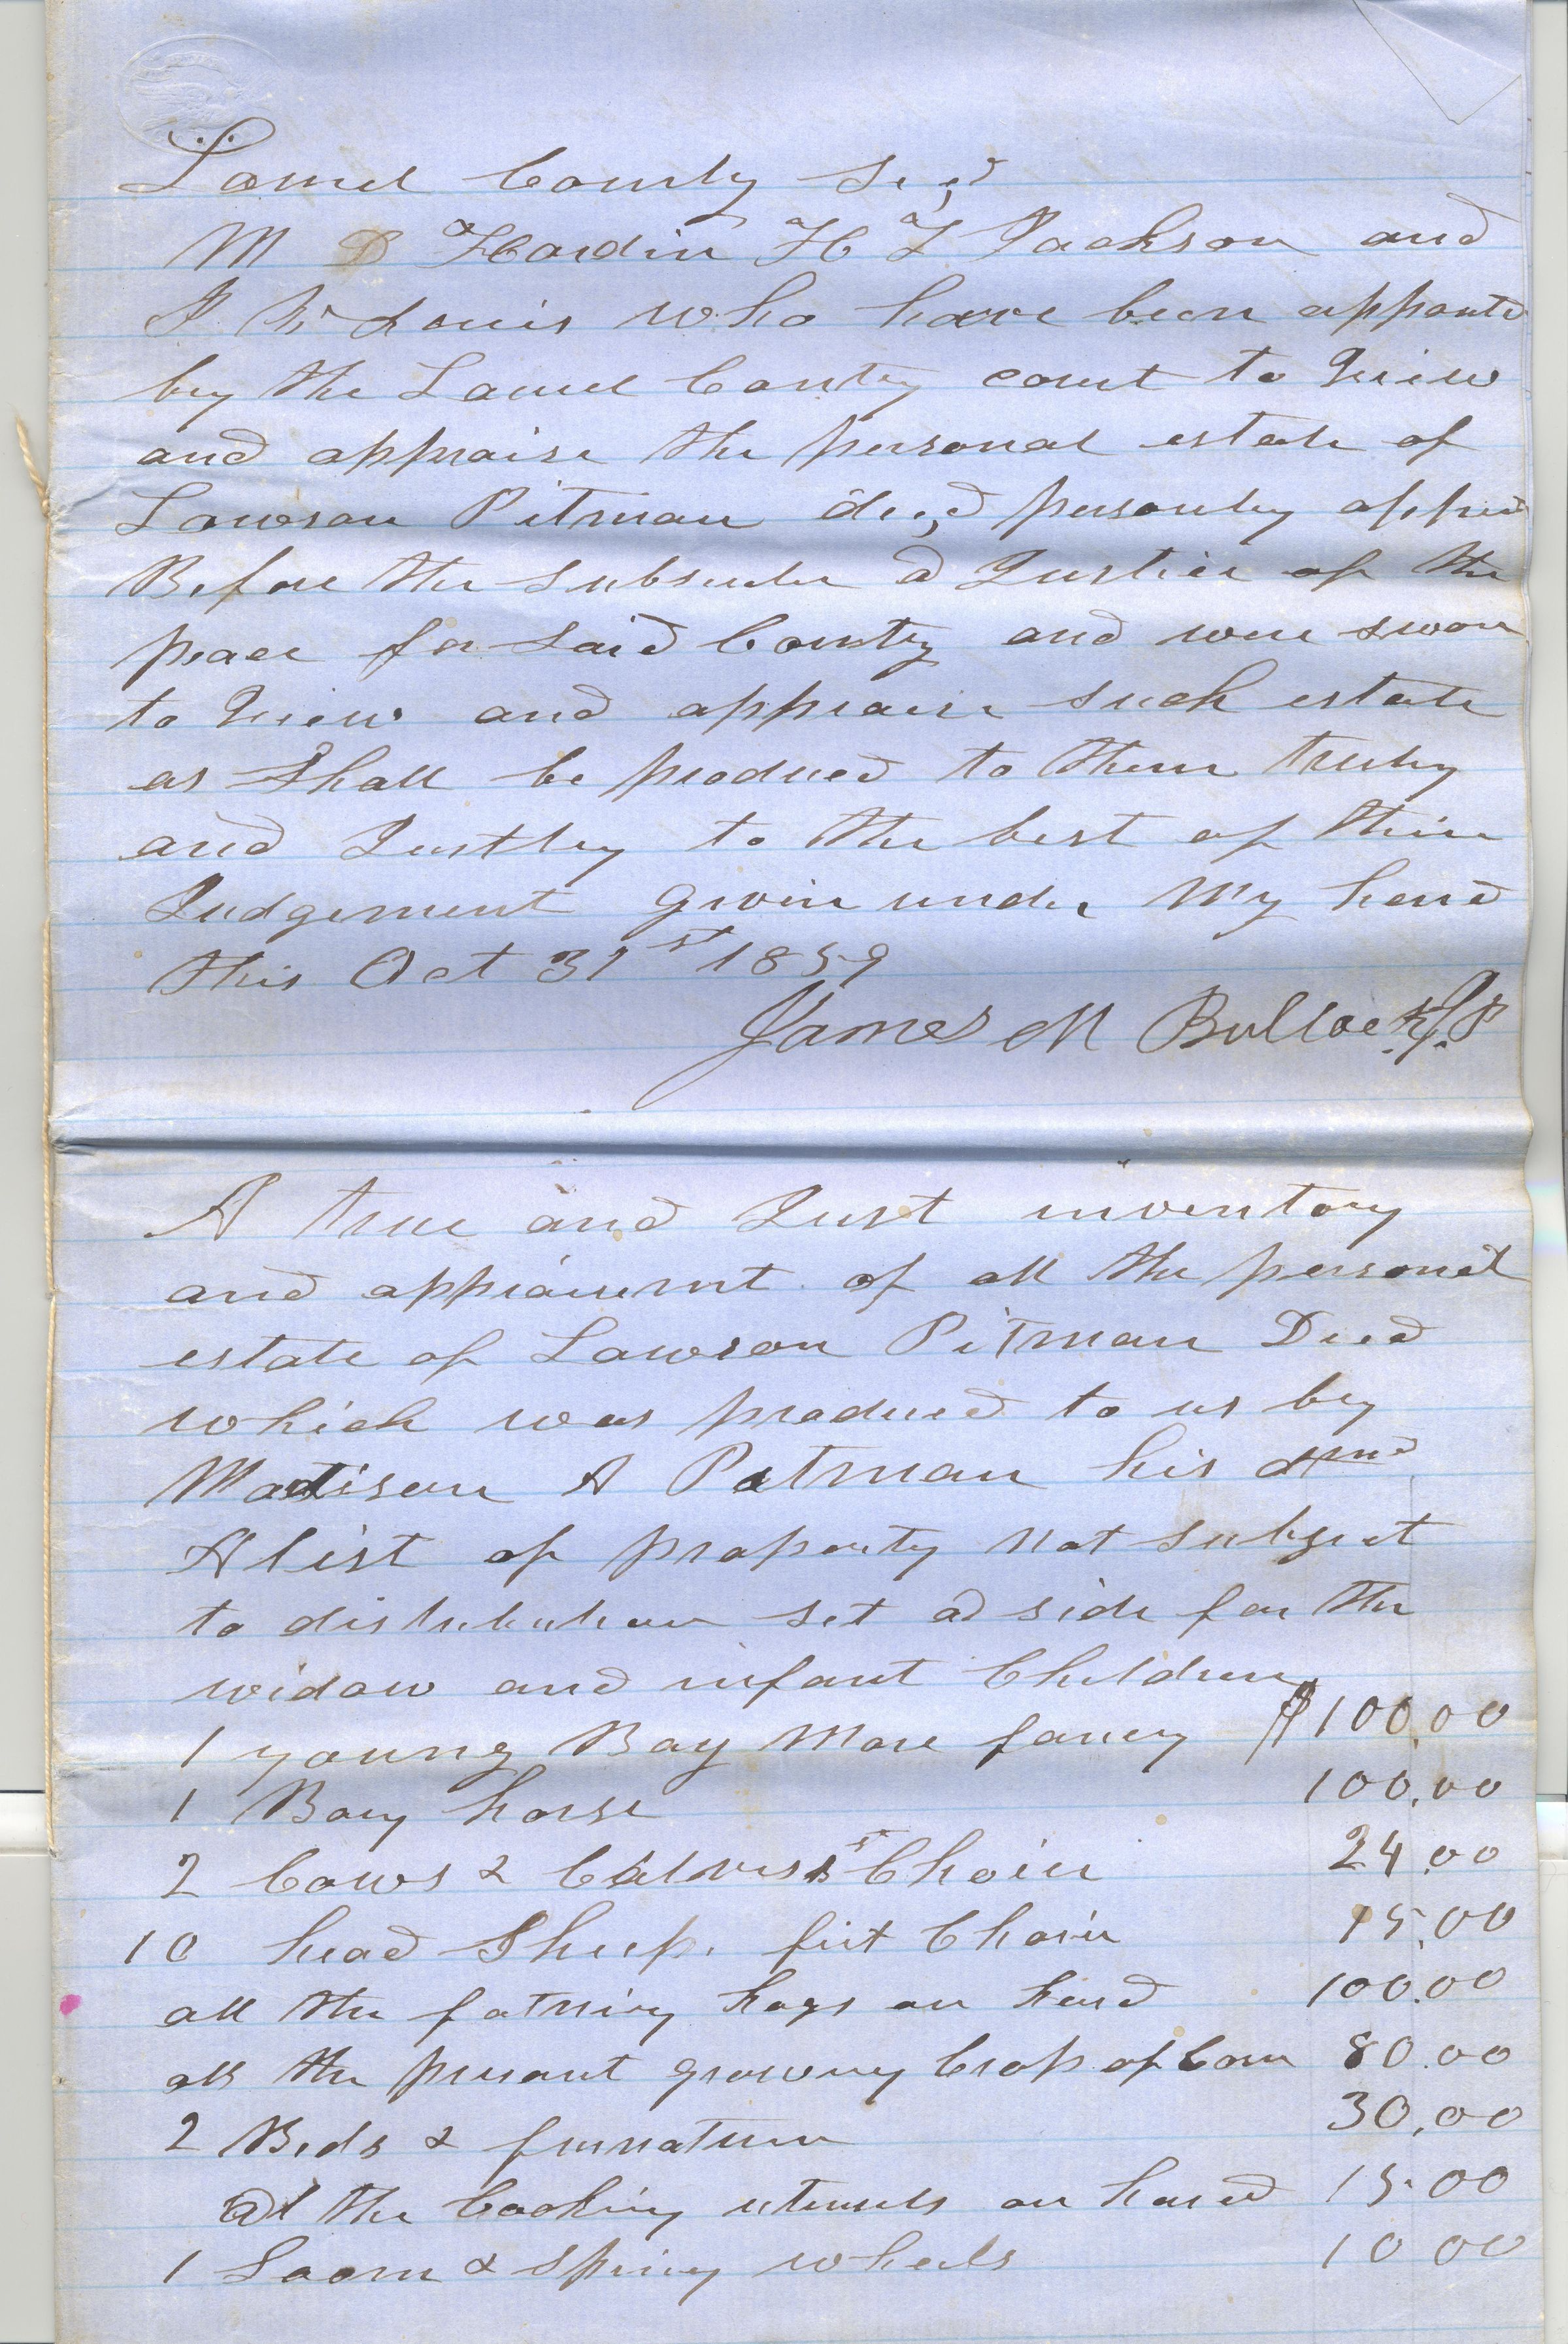 Laurel County Sc,t
M D Hardin H L Jackson and
J W Louis who have been appointd
by the Laurel County court to View
and appraise the personal estate of
Lawson Pitman dec,d personly appred
Before the subscriber a Justice of the
peace for said County and were sworn
to View and appraise such estate
as Shall be produced to them truley
and Justley to the best of their
Judgement given under My hand
this Oct 31st 1859
James M Bullock J.P
A true and Just inventory
and appraisement of all the personal
estate of Lawson Pitman Decd
which was produced to us by
Madison A Pitman his
A list of property Not subject
to distribution set a side for the
widow and infant Children
1 young Bay Mare fancy $100.00
1 Bay horse 100.00
2 Cows & Calves 1st Choice 24.00
10 head Sheep first Choice 15.00
all the fatning hogs on hand 100.00
all the presant growing Crop of Corn 80.00
2 Beds & furnature 30.00
all the Cooking utensels on hand 15.00
1 Loom & Spining wheels 10 00